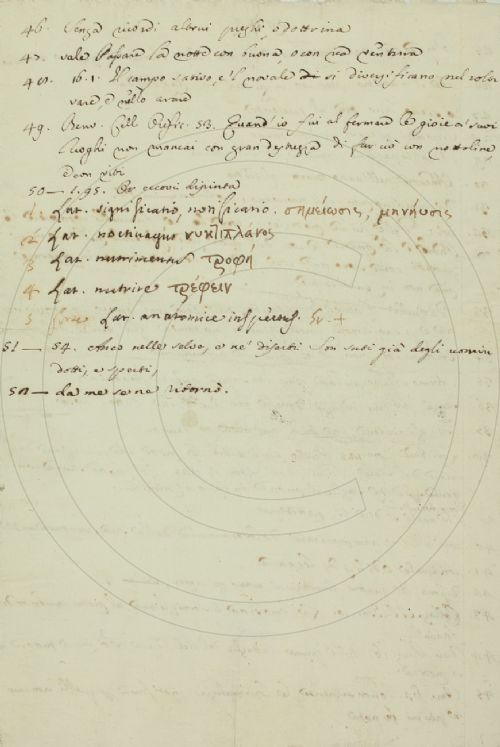 46. Senza ricordi altrui preghi o dottrina
47. vale Passare la notte con buona, o con rea ventura
48. 16. 1. Il campo sativo, e 'l novale si diversificano nel
vare
49. Benv. Cell. Orific. 53. Quand' io fui al fermare le gioie a' suoi
luoghi non mancai con gran destrezza di far ciò con nottoline,
e con viti
50 — 1. 95. Or eccovi dipinta
1. Lat. significatio, notificatio. σημείωσις, μηνύωσις
2 Lat. noctivagus νυκτίπλανος
3 Lat. nutrimentum τροφή
4 Lat. nutrire τρέφειν
5 Lat. anatomice
51 — 54. ebreo nelle selve, e ne' diserti son suti già degli uomini
dotti, e sperti,
52 — da me se ne ritornò.